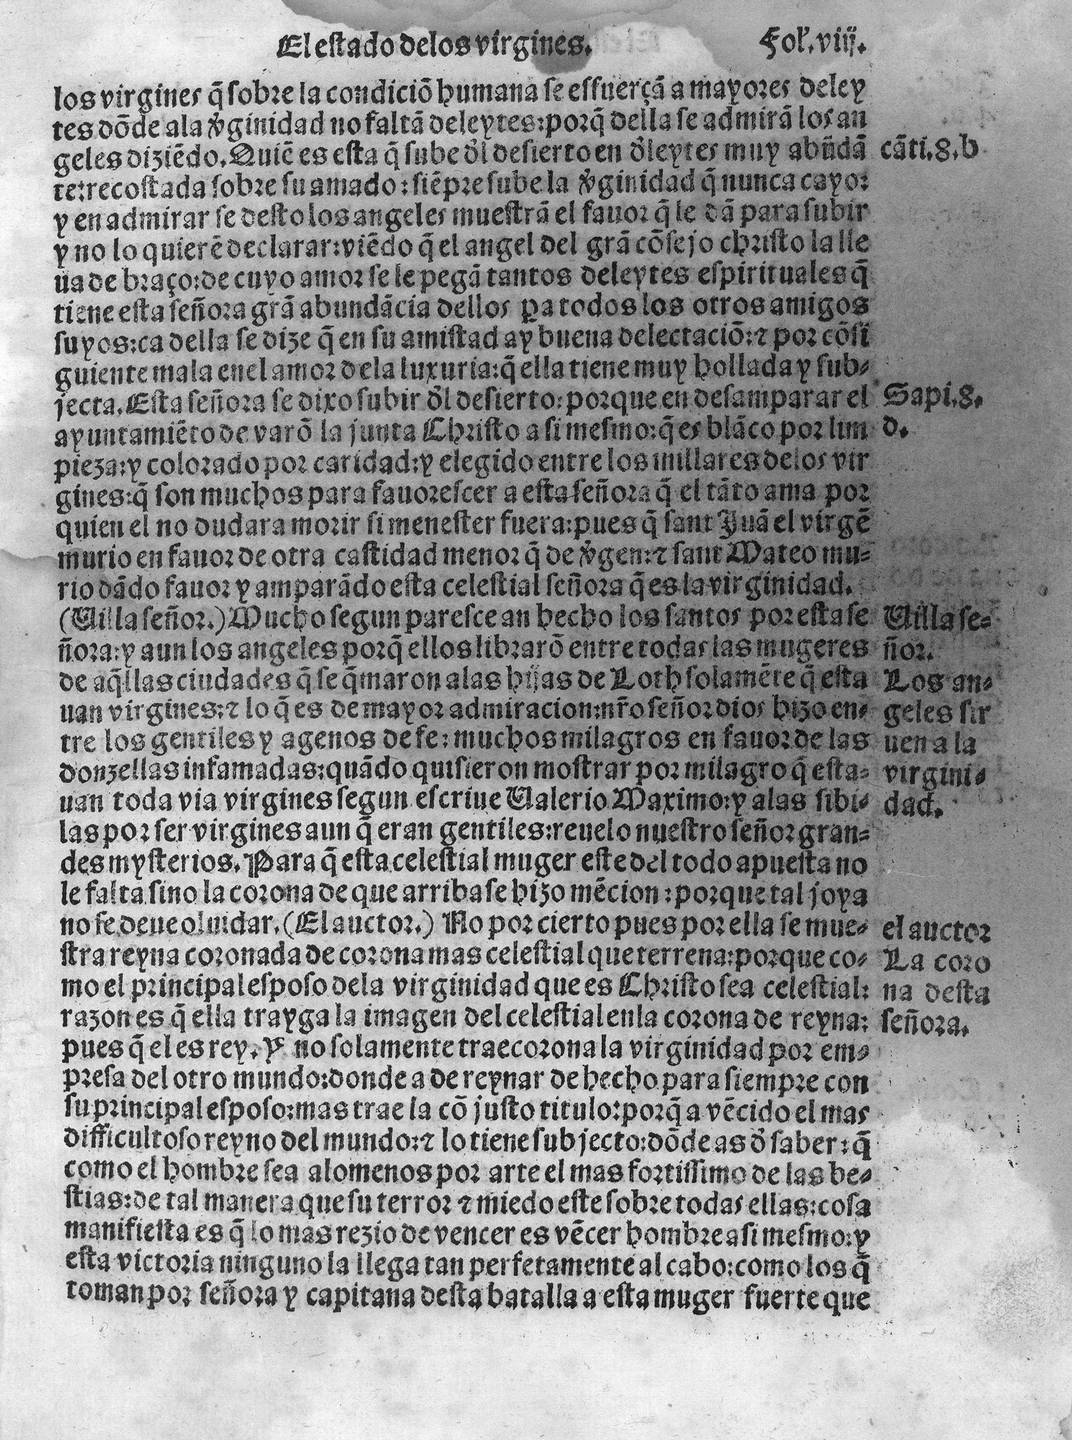 El estado delos virgines. Fol'. viij.
los virgines q̃ sobre la condiciõ humana se esfuerçã a mayores deley
tes dõde ala v̾ginidad no faltã deleytes: porq̃ della se admirã los an
geles diziẽdo. Quiẽ es esta q̃ sube d̾l desierto en d̾leytes muy abũdã
te: recostada sobre su amado: siẽpre sube la v̾ginidad q̃ nunca cayo:
y en admirar se desto los angeles muestrã el fauor q̃ le dã para subir
y no lo quierẽ declarar: viẽdo q̃ el angel del grã cõsejo christo la lle
ua de braço: de cuyo amor se le pegã tantos deleytes espirituales q̃
tiene esta señora grã abundãcia dellos ꝑa todos los otros amigos
suyos: ca della se dize q̃ en su amistad ay buena delectaciõ: ⁊ por cõsi
guiente mala enel amor dela luxuria: q̃ ella tiene muy hollada y sub-
jecta. Esta señora se dixo subir d̾l desierto: porque en desamparar el
ayuntamiẽto de varõ la junta Christo a si mesmo: q̃ es blãco por lim
pieza: y colorado por caridad: y elegido entre los millares delos vir
gines: q̃ son muchos para fauorescer a esta señora q̃ el tãto ama por
quien el no dudara morir si menester fuera: pues q̃ sant Juã el virgẽ
murio en fauor de otra castidad menor q̃ de v̾gen: ⁊ sant Mateo mu-
rio dãdo fauor y amparãdo esta celestial señora q̃ es la virginidad.
(Uilla señor.) Mucho segun paresce an hecho los santos por esta se
ñora: y aun los angeles porq̃ ellos librarõ entre todas las mugeres
de aq̃llas ciudades q̃ se q̃maron alas hijas de Loth solamẽte q̃ esta
uan virgines: ⁊ lo q̃ es de mayor admiracion: nr̃o señor dios hizo en-
tre los gentiles y agenos de fe: muchos milagros en fauor de las
donzellas infamadas: quãdo quisieron mostrar por milagro q̃ esta-
uan toda via virgines segun escriue Ualerio Maximo: y alas sibi-
las por ser virgines aun q̃ eran gentiles: reuelo nuestro señor gran-
des mysterios. Para q̃ esta celestial muger este del todo apuesta no
le falta sino la corona de que arriba se hizo mẽcion: porque tal joya
no se deue oluidar. (El auctor.) No por cierto pues por ella se mue-
stra reyna coronada de corona mas celestial que terrena: porque co-
mo el principal esposo dela virginidad que es Christo sea celestial:
razon es q̃ ella trayga la imagen del celestial enla corona de reyna:
pues q̃ el es rey. Y no solamente trae corona la virginidad por em-
presa del otro mundo: donde a de reynar de hecho para siempre con
su principal esposo: mas trae la cõ justo titulo: porq̃ a vẽcido el mas
difficultoso reyno del mundo: ⁊ lo tiene subjecto: dõde as d̾ saber: q̃
como el hombre sea alomenos por arte el mas fortissimo de las be-
stias: de tal manera que su terror ⁊ miedo este sobre todas ellas: cosa
manifiesta es q̃ lo mas rezio de vencer es vẽcer hombre a si mesmo: y
esta victoria ninguno la llega tan perfetamente al cabo: como los q̃
toman por señora y capitana desta batalla a esta muger fuerte que
cãti. 8. b
Sapi. 8.
d.
Uilla se-
ñor.
Los an-
geles sir
uen a la
virgini-
dad.
el auctor
La coro
na desta
señora.